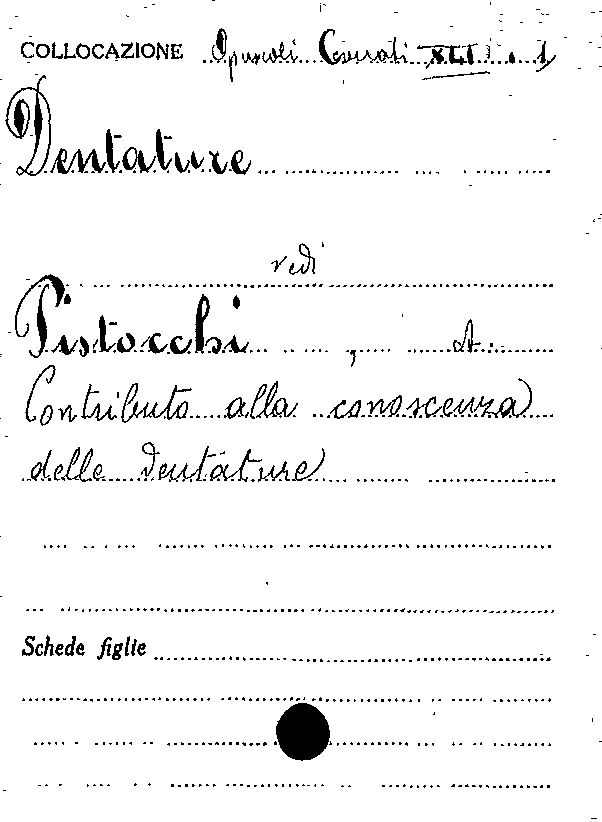 COLLOCAZIONE Opuscoli XLI . 1
Dentature
vedi
Pistocchi, A.
Contributo alla conoscenza
delle dentature
Schede figlie